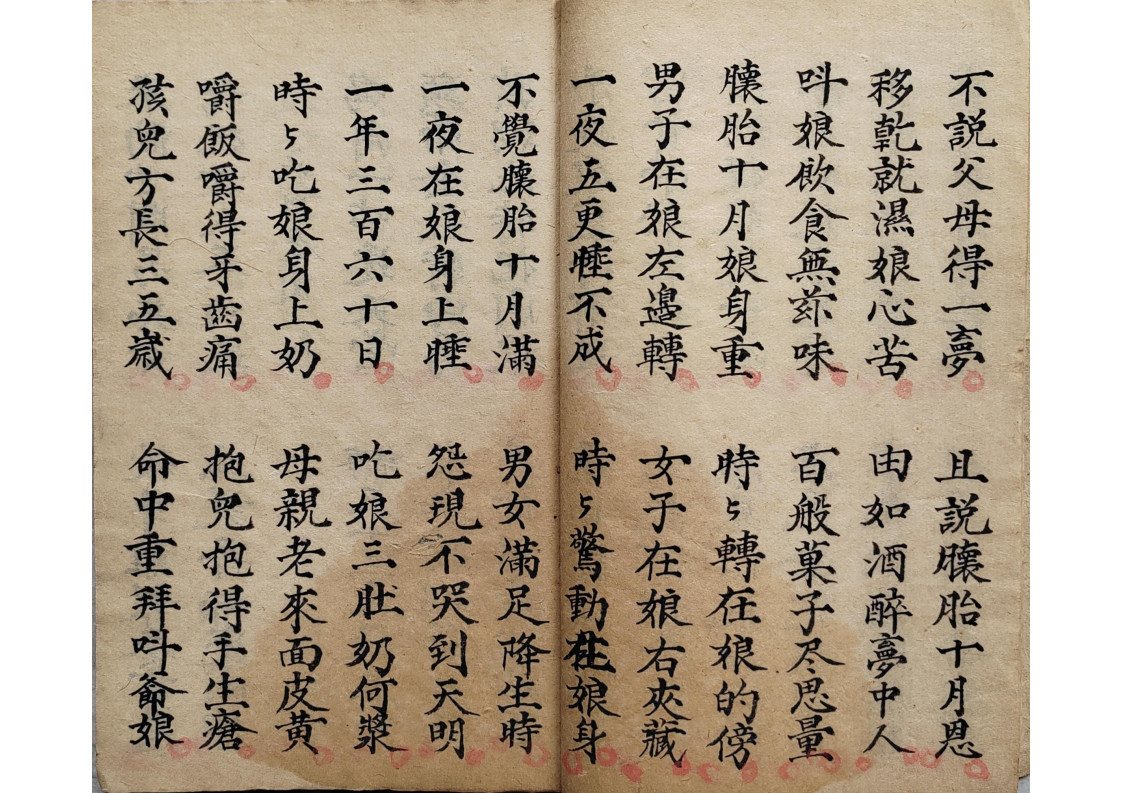 不説父母得一夢 且説臁胎十月恩
移乾就濕娘心苦 由如酒醉夢中人
呌娘飲食無茶味 百般菓子尽思量
臁胎十月娘身重 時々轉在娘的傍
男子在娘左邉轉 女子在娘右夾藏
一夜五更睡不成 時々驚動在娘身
不覺臁胎十月滿 男女滿足降生時
一夜在娘身上睡 怨現不哭到天明
一年三百六十日 吃娘三肚奶何漿
時々吃娘身上奶 母親老來面皮黄
嚼飯嚼得牙齒痛 抱兒抱得手生瘡
孩兒方長三五歲 命中重拜呌爺娘